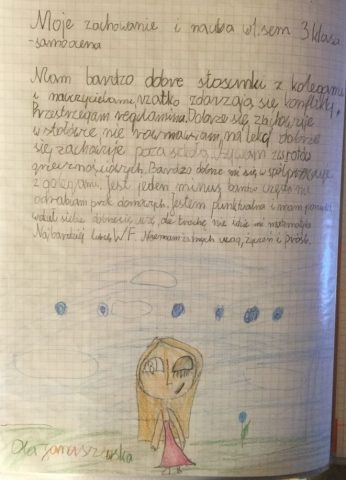 Moje zachowanie i nauka w I sem 3 klasa
- samoocena
Mam bardzo dobre stosunki z kolegami
i nauczycielami, rzatko zdarzają się konflikty.
Przestrzegam regulaminu. Dobrze się zachowuje
w stołówce, nie rozmawiam, na lekcj dobrze
się zachowuje poza szkołą. Używam zwrotów
grzecznościowych. Bardzo dobrze mi się współpracuje
z kolegami. Jest jeden minus bardzo często nie
odrabiam prac domowych. Jestem punktualna i mam
się, ale trochę nie idzie mi matematyka
Najbardziej lubię WF. Nie mam żadnych uwag, życzeń i próśb.
Ola Januszewska